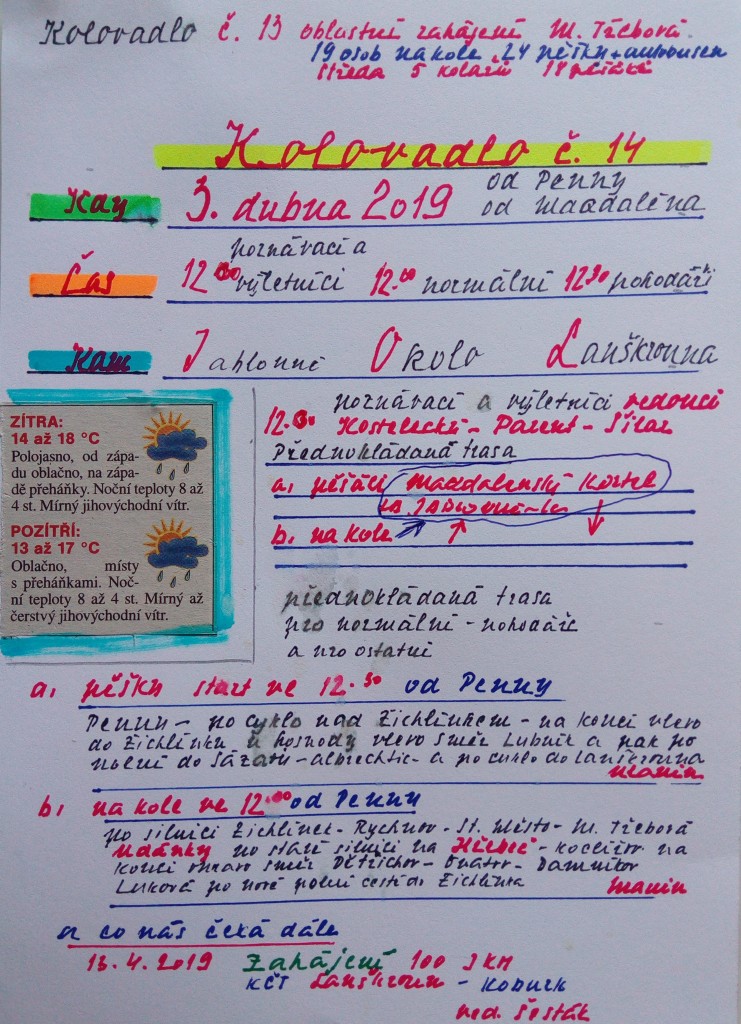 Kolovadlo č. 13 oblastní zahájení M. Třebová.
19 osob na kole 24 pěšky + autobusem
středa 5 kolařů 18 pěšáků
Kolovadlo č. 14
Kdy 3. dubna 2019 od Penny
od Magdaléna
poznávací a
Čas 12.30 výletníci 12.00 normální 12.30 pohodáři
Kam Jablonné Okolo Lanškrouna
ZÍTRA:
14 až 18 °C
Polojasno, od západu
oblačno, na západě
přeháňky. Noční teploty 8 až
4 st. Mírný jihovýchodní vítr.
POZÍTŘÍ:
13 až 17 °C
Oblačno, místy
s přeháňkami. Noční
teploty 8 až 4 st. Mírný až
čerstvý jihovýchodní vítr.
poznávací a výletníci vedoucí
Kostelecký - Parent - Šilar
Předpokládaná trasa
a, pěšáci Magdalenský kostel
b, na kole
předpokládaná trasa
pro normální - pohodáře
a pro ostatní
a, pěšky start ve 12.30 od Penny
Penny - po cyklo nad Žichlínkem - na konci vlevo
do Žichlínku u hospody vlevo směr Lubník a pak po
polní do Sázavy - Albrechtic - a po cyklo do Lanškrouna
b, na kole ve 12.00 od Penny
po silnici Žichlínek - Rychnov - St. Město - M. Třebová
Udánky po staré silnici na Hřebeč - Koclířov na
konci vpravo směr Dětřichov - - Damníkov
Luková po nové polní cestě do Žichlínka
a co nás čeká dále
13.4.2019 Zahájení 100 JKM
KČT Lanškroun - Koburk
ved. Šesták